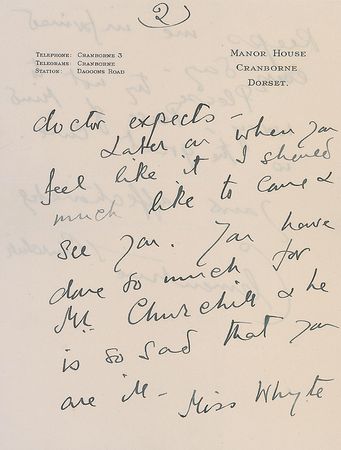 (2)
TELEPHONE: CRANBORNE 3
TELEGRAMS: CRANBORNE
STATION: DAGGONS ROAD
MANOR HOUSE
CRANBORNE
DORSET.
doctor expects –
Later on when you
feel like it I should
much like to come &
see you. You have
done so much for
Mr. Churchill & he
is so sad that you
are ill – Miss Whyte